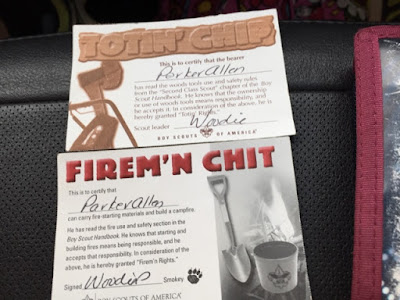 TOTIN' CHIP
This is to certify that the bearer
Parker Allen
has read the woods tools use and safety rules
from the "Second Class Scout" chapter of the Boy
Scout Handbook. He knows that the ownership
or use of woods tools means responsibility, and
he accepts it. In consideration of the above, he is
hereby granted "Totin' Rights."
Scout leader Woodie
BOY SCOUTS OF AMERICA
FIREM'N CHIT
This is to certify that
Parker Allen
can carry fire-starting materials and build a campfire.
He has read the fire use and safety section in the
Boy Scout Handbook. He knows that starting and
building fires means being responsible, and he
accepts that responsibility. In consideration of the
above, he is hereby granted "Firem'n Rights."
Signed Woodie Smokey
BOY SCOUTS OF AMERICA